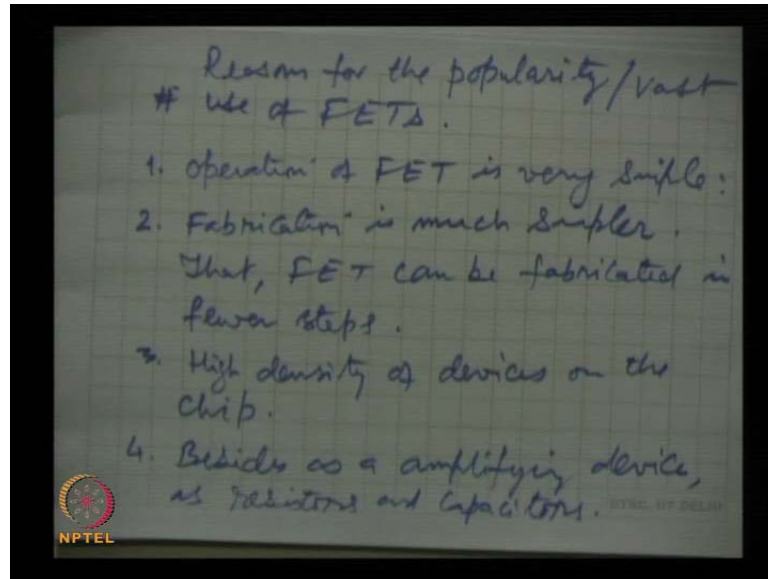 Reasons for the popularity/vast
# use of FETs.
1. Operation of FET is very simple:
2. Fabrication is much simpler.
That, FET can be fabricated in
fewer steps.
3. High density of devices on the
chip.
4. Besides as a amplifying device,
as resistors and capacitors.
NPTEL
ETSC, IIT DELHI